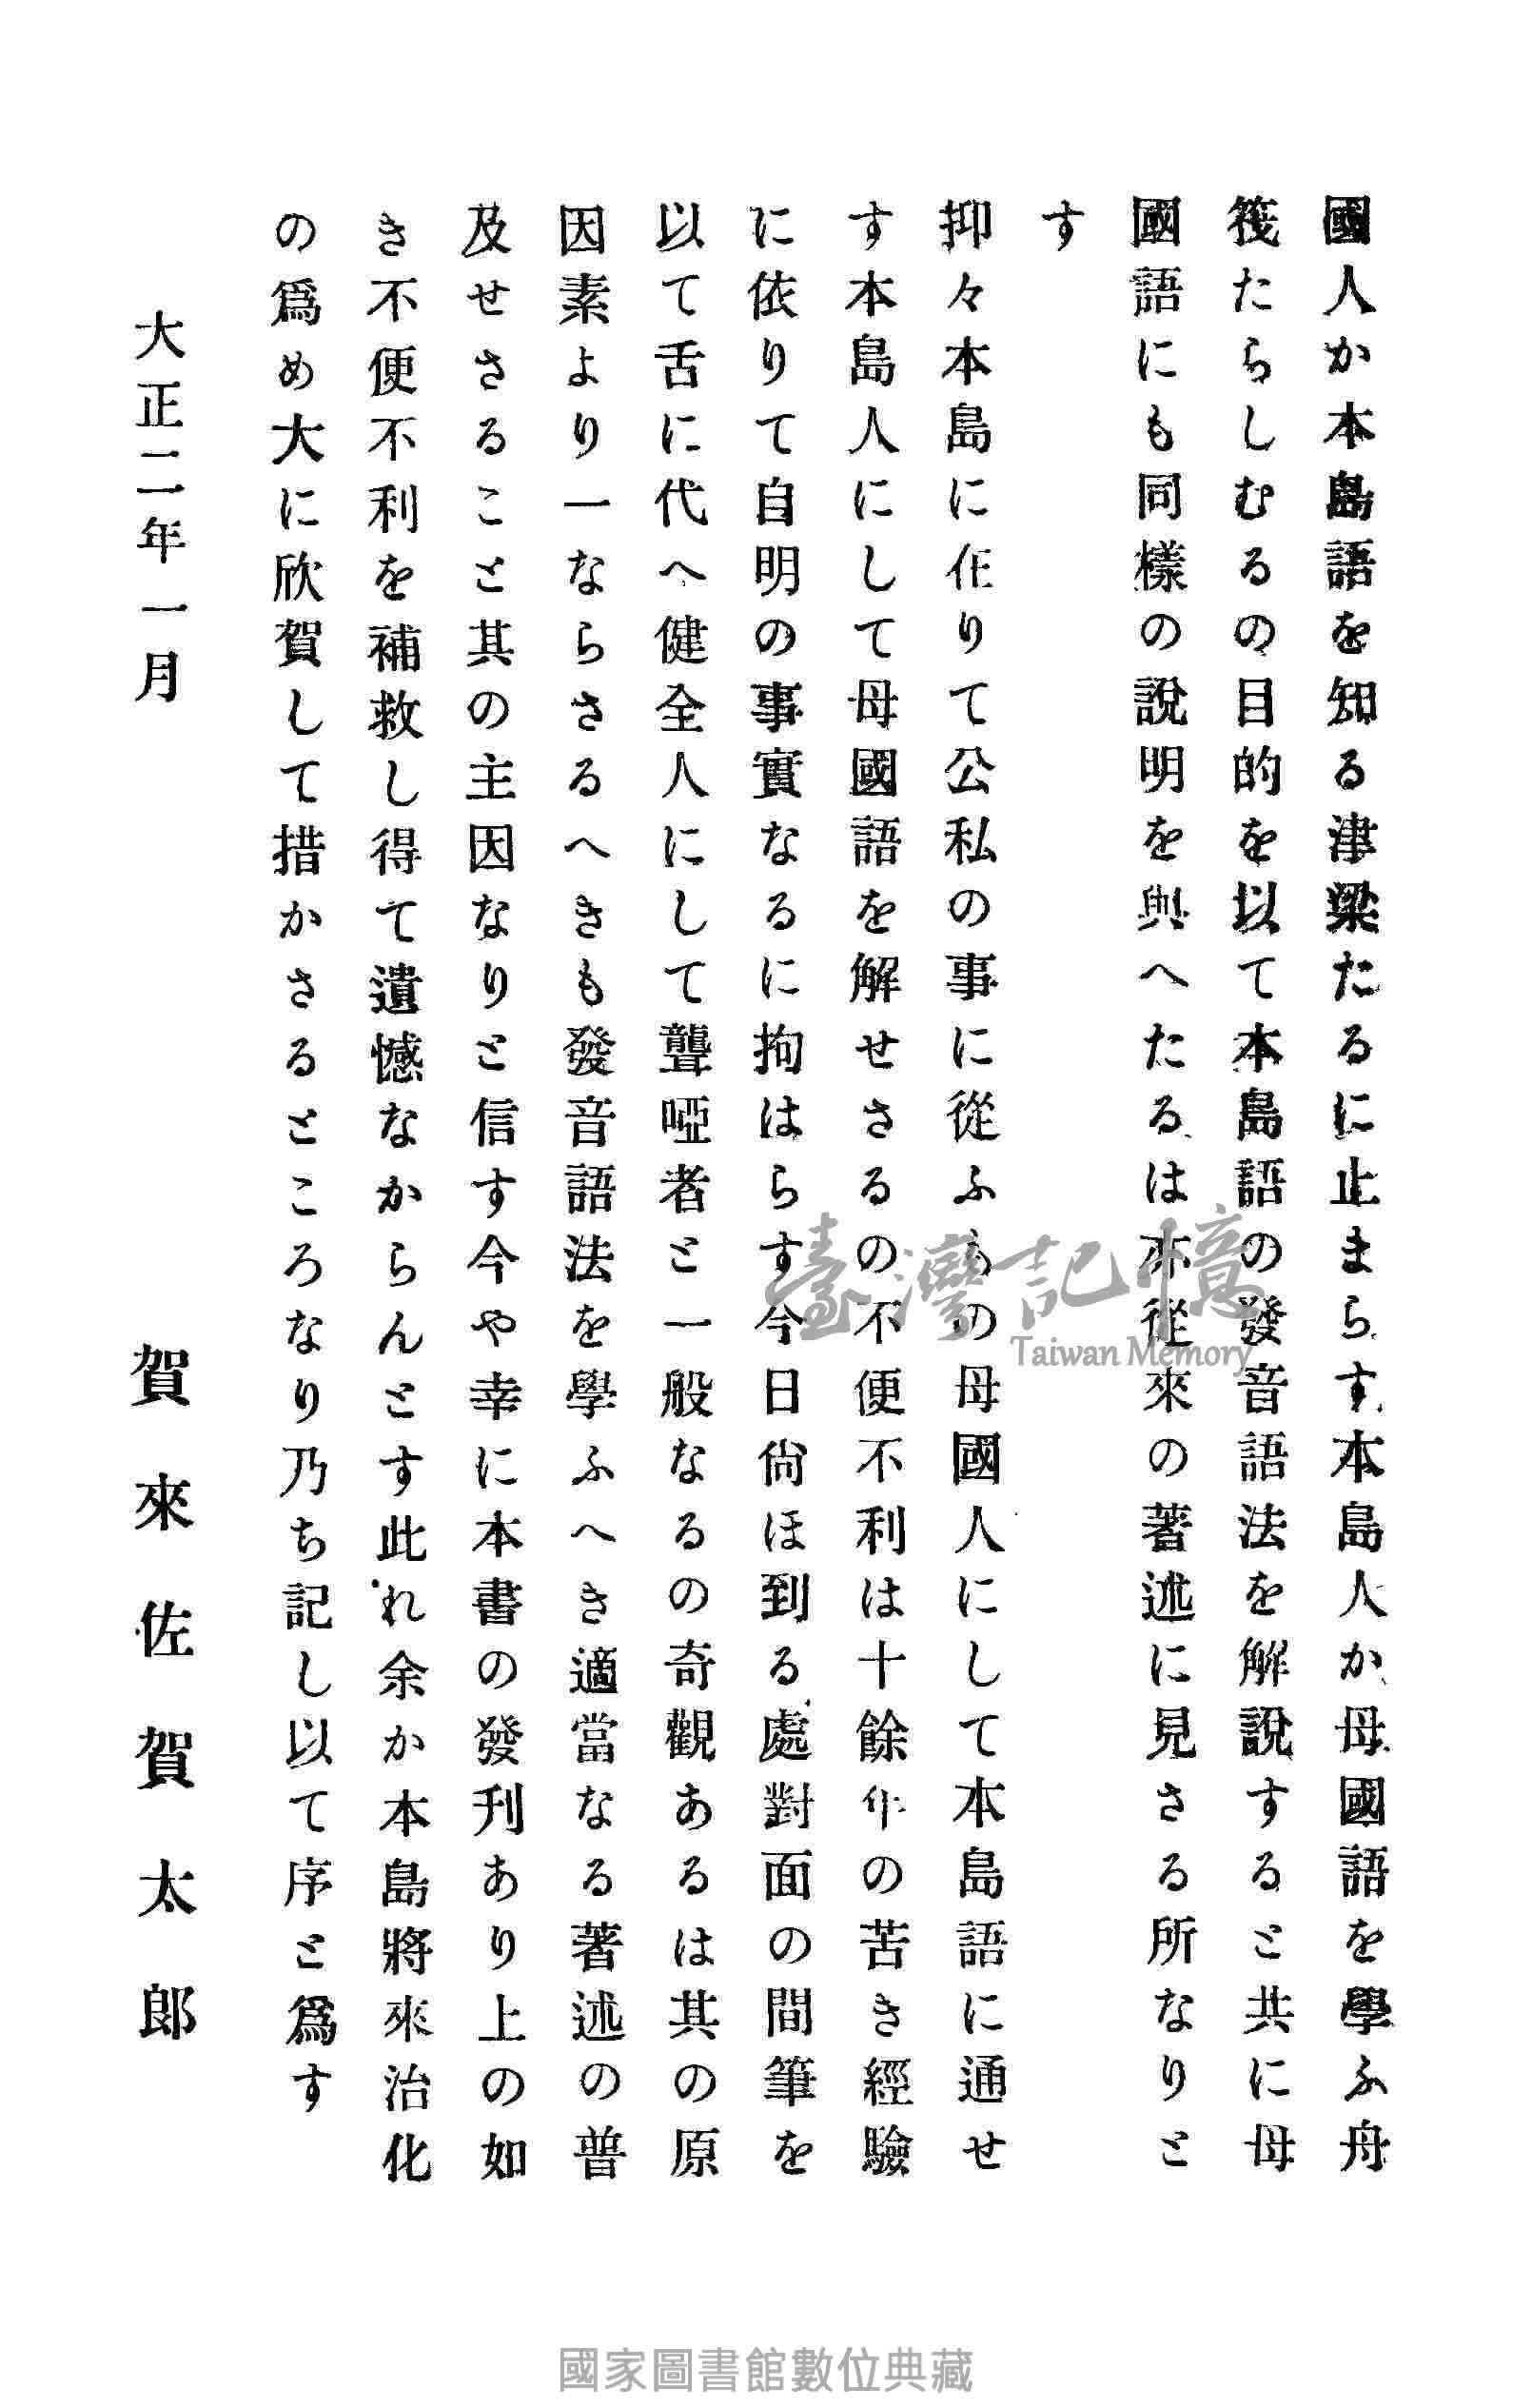 國人か本島語を知る津梁たるに止まらす本島人か母國語を學ふ舟
筏たらしむるの目的を以て本島語の發音語法を解說すると共に母
國語にも同樣の說明を與へたるは亦從來の著述に見さる所なりと
す
抑々本島に在りて公私の事に從ふもの母國人にして本島語に通せ
す本島人にして母國語を解せさるの不便不利は十餘年の苦き經驗
に依りて自明の事實なるに拘はらす今日尙ほ到る處對面の間筆を
以て舌に代へ健全人にして聾啞者と一般なるの奇觀あるは其の原
因素より一ならさるへきも發音語法を學ふへき適當なる著述の普
及せさること其の主因なりと信す今や幸に本書の發刊あり上の如
き不便不利を補救し得て遺憾なからんとす此れ余か本島將來治化
の爲め大に欣賀して措かさるところなり乃ち記し以て序と爲す
大正二年一月
賀來佐賀太郎
臺灣記憶
Taiwan Memory
國家圖書館數位典藏